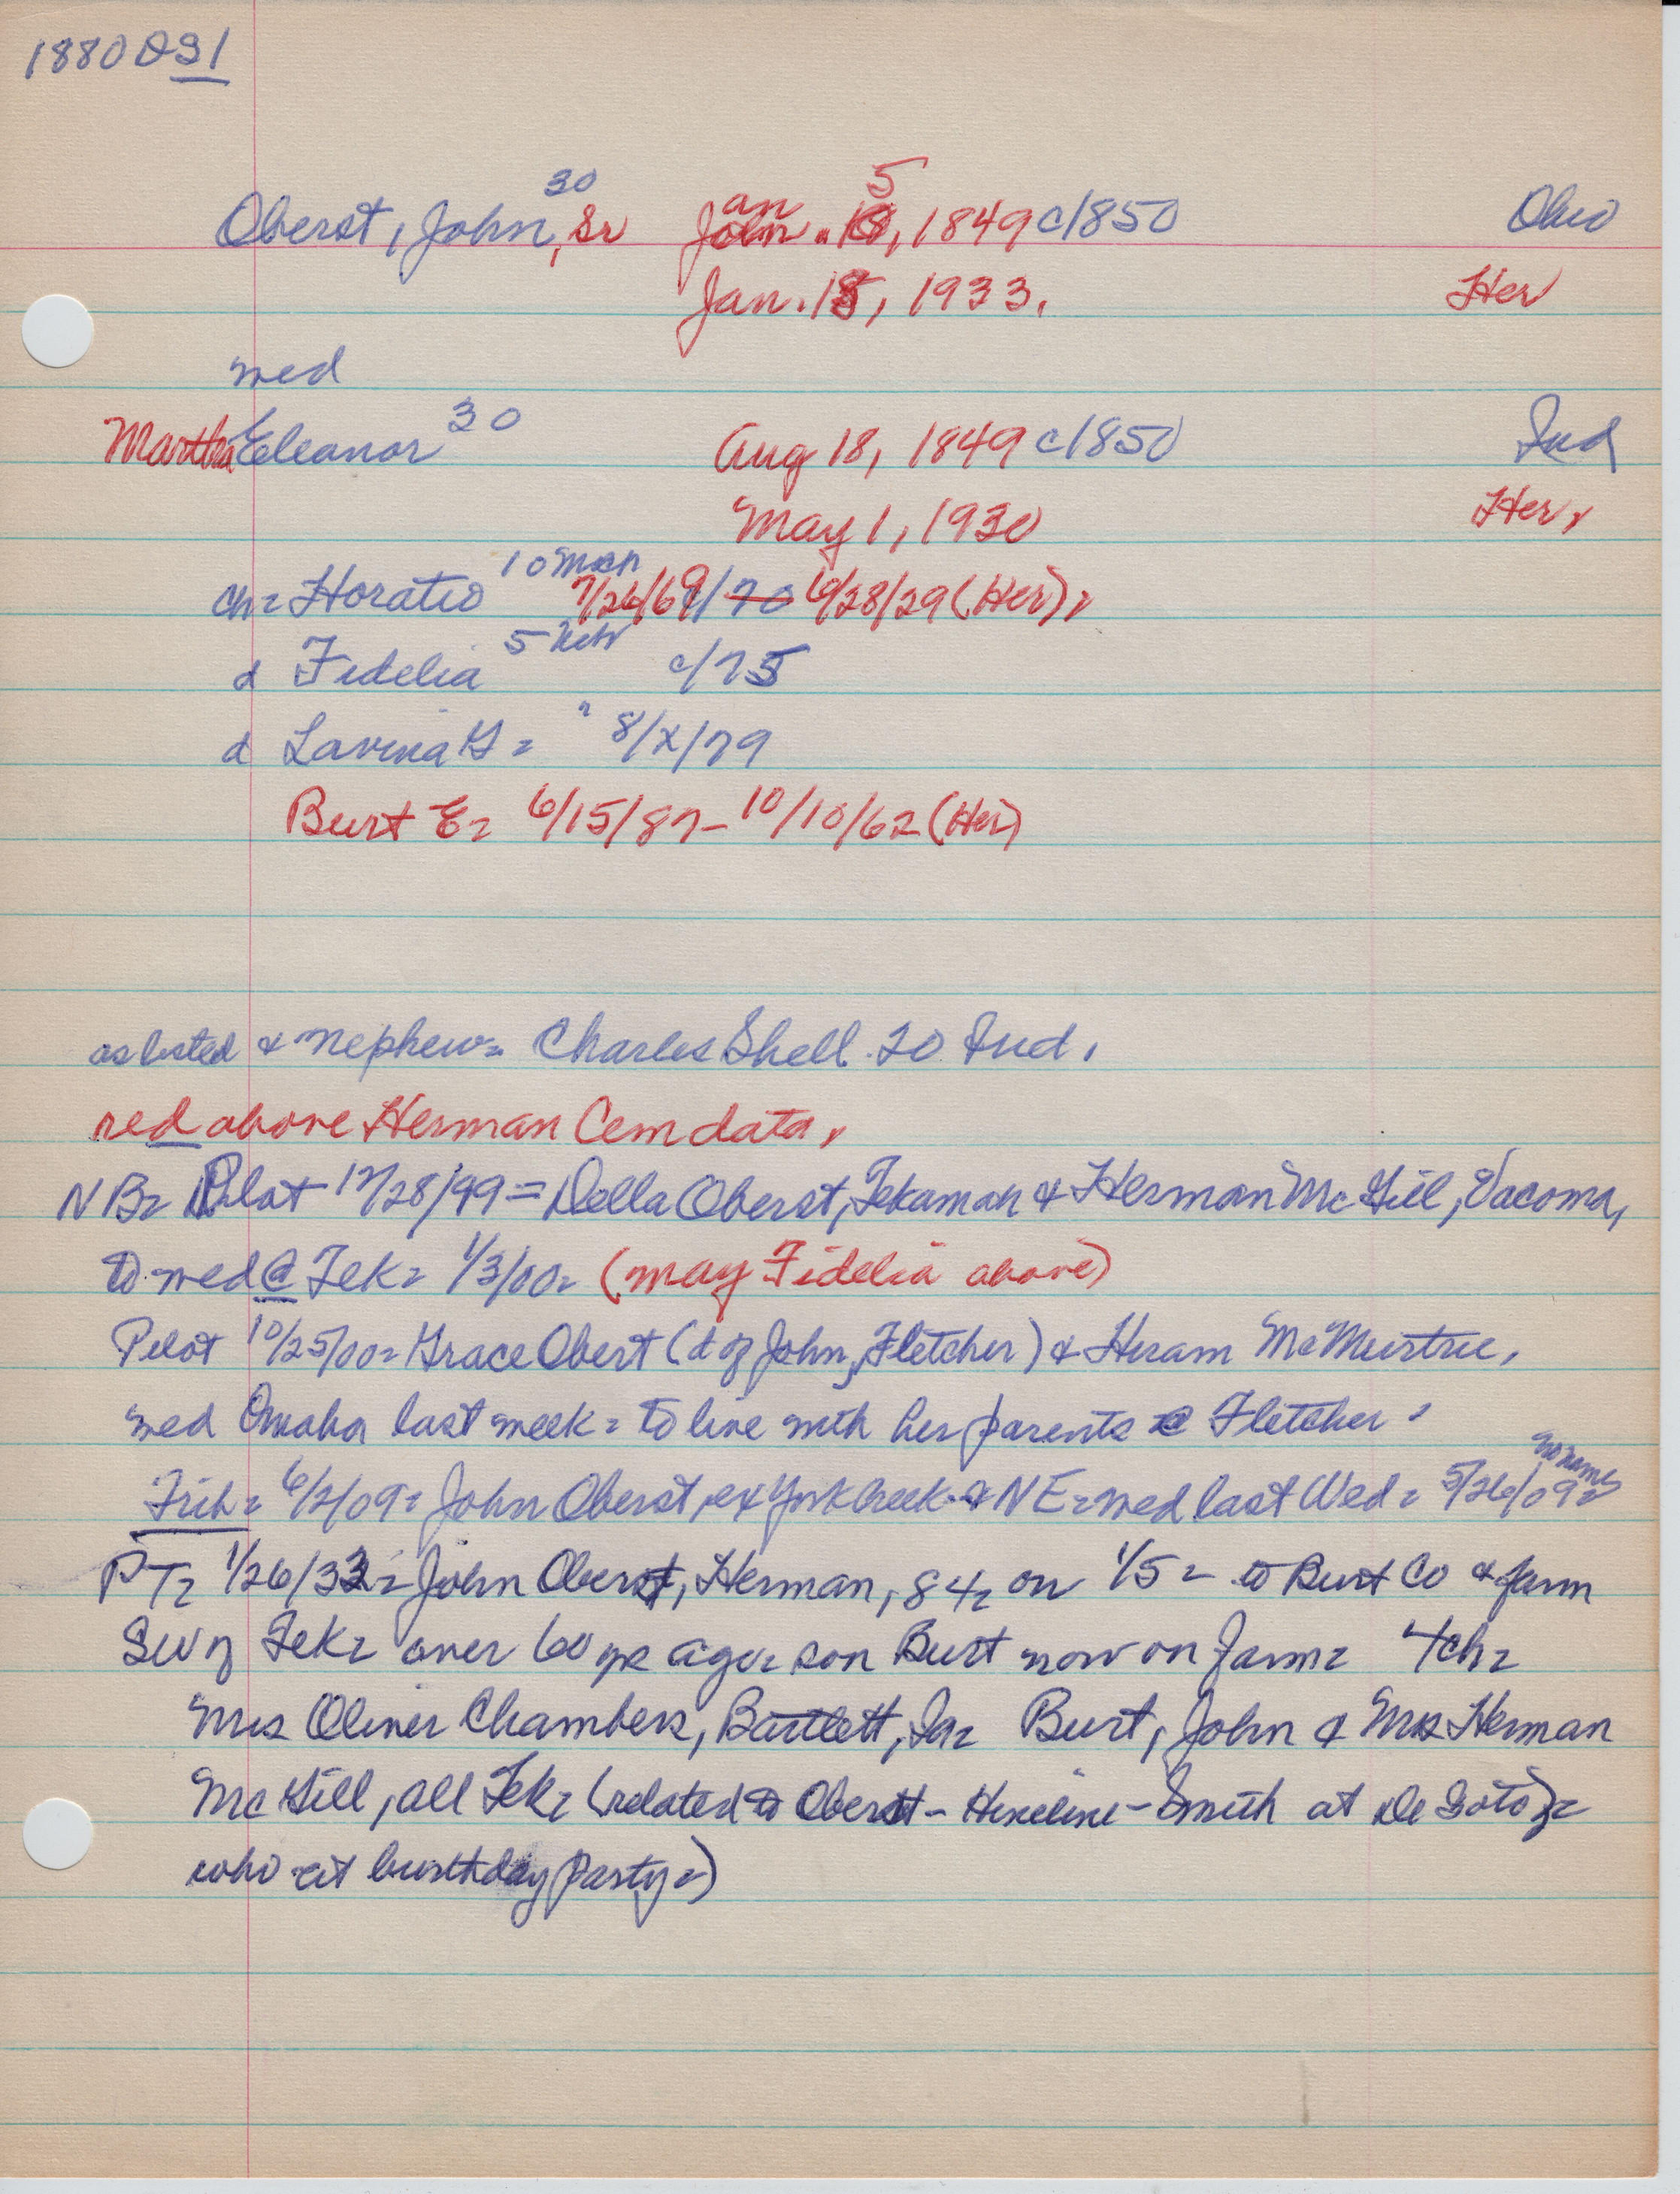 1880 D31
Oberst, John, 30 Sr Jan. 5, 1849 c/1850 Ohio
Jan. 15, 1933. Her
med
Martha Eleanor 30 Aug 18, 1849 c/1850 Ind
May 1, 1930 Her,
ch= Horatio 10 7/26/69/70 6/28/29 (Her),
d Fidelia 5 Neb c/75
d Lavina G = " 8/x/79
Burt E= 6/15/87- 10/10/62 (Her)
as listed & nephew= Charles Shell 20 Ind,
red above Herman Cem data,
NB= Pilot 12/28/99= Della Oberst, Tekamah & Herman McGill, Vacoma,
to med @ Tek= 1/3/00= (may Fidelia above)
Pilot 10/25/00= Grace Obert (d of John, Fletcher) & Hiram McMurtree,
med Omaha last week= to live with her parents @ Fletcher=
Trib= 6/2/09= John Oberst, ex York Creek & NE= med last Wed= 5/26/09= no name
PT= 1/26/33= John Oberst, Herman, 84= on 1/5= to Burt Co & farm
SW of Tek= over 60 yr ago= son Burt now on farm= 4ch=
Mrs Oliver Chambers, Bartlett, Ia= Burt, John & Mrs Herman
McGill, all Tek= (related to Oberst- Hineline- Smith at De Soto)=
who at birthday party=)